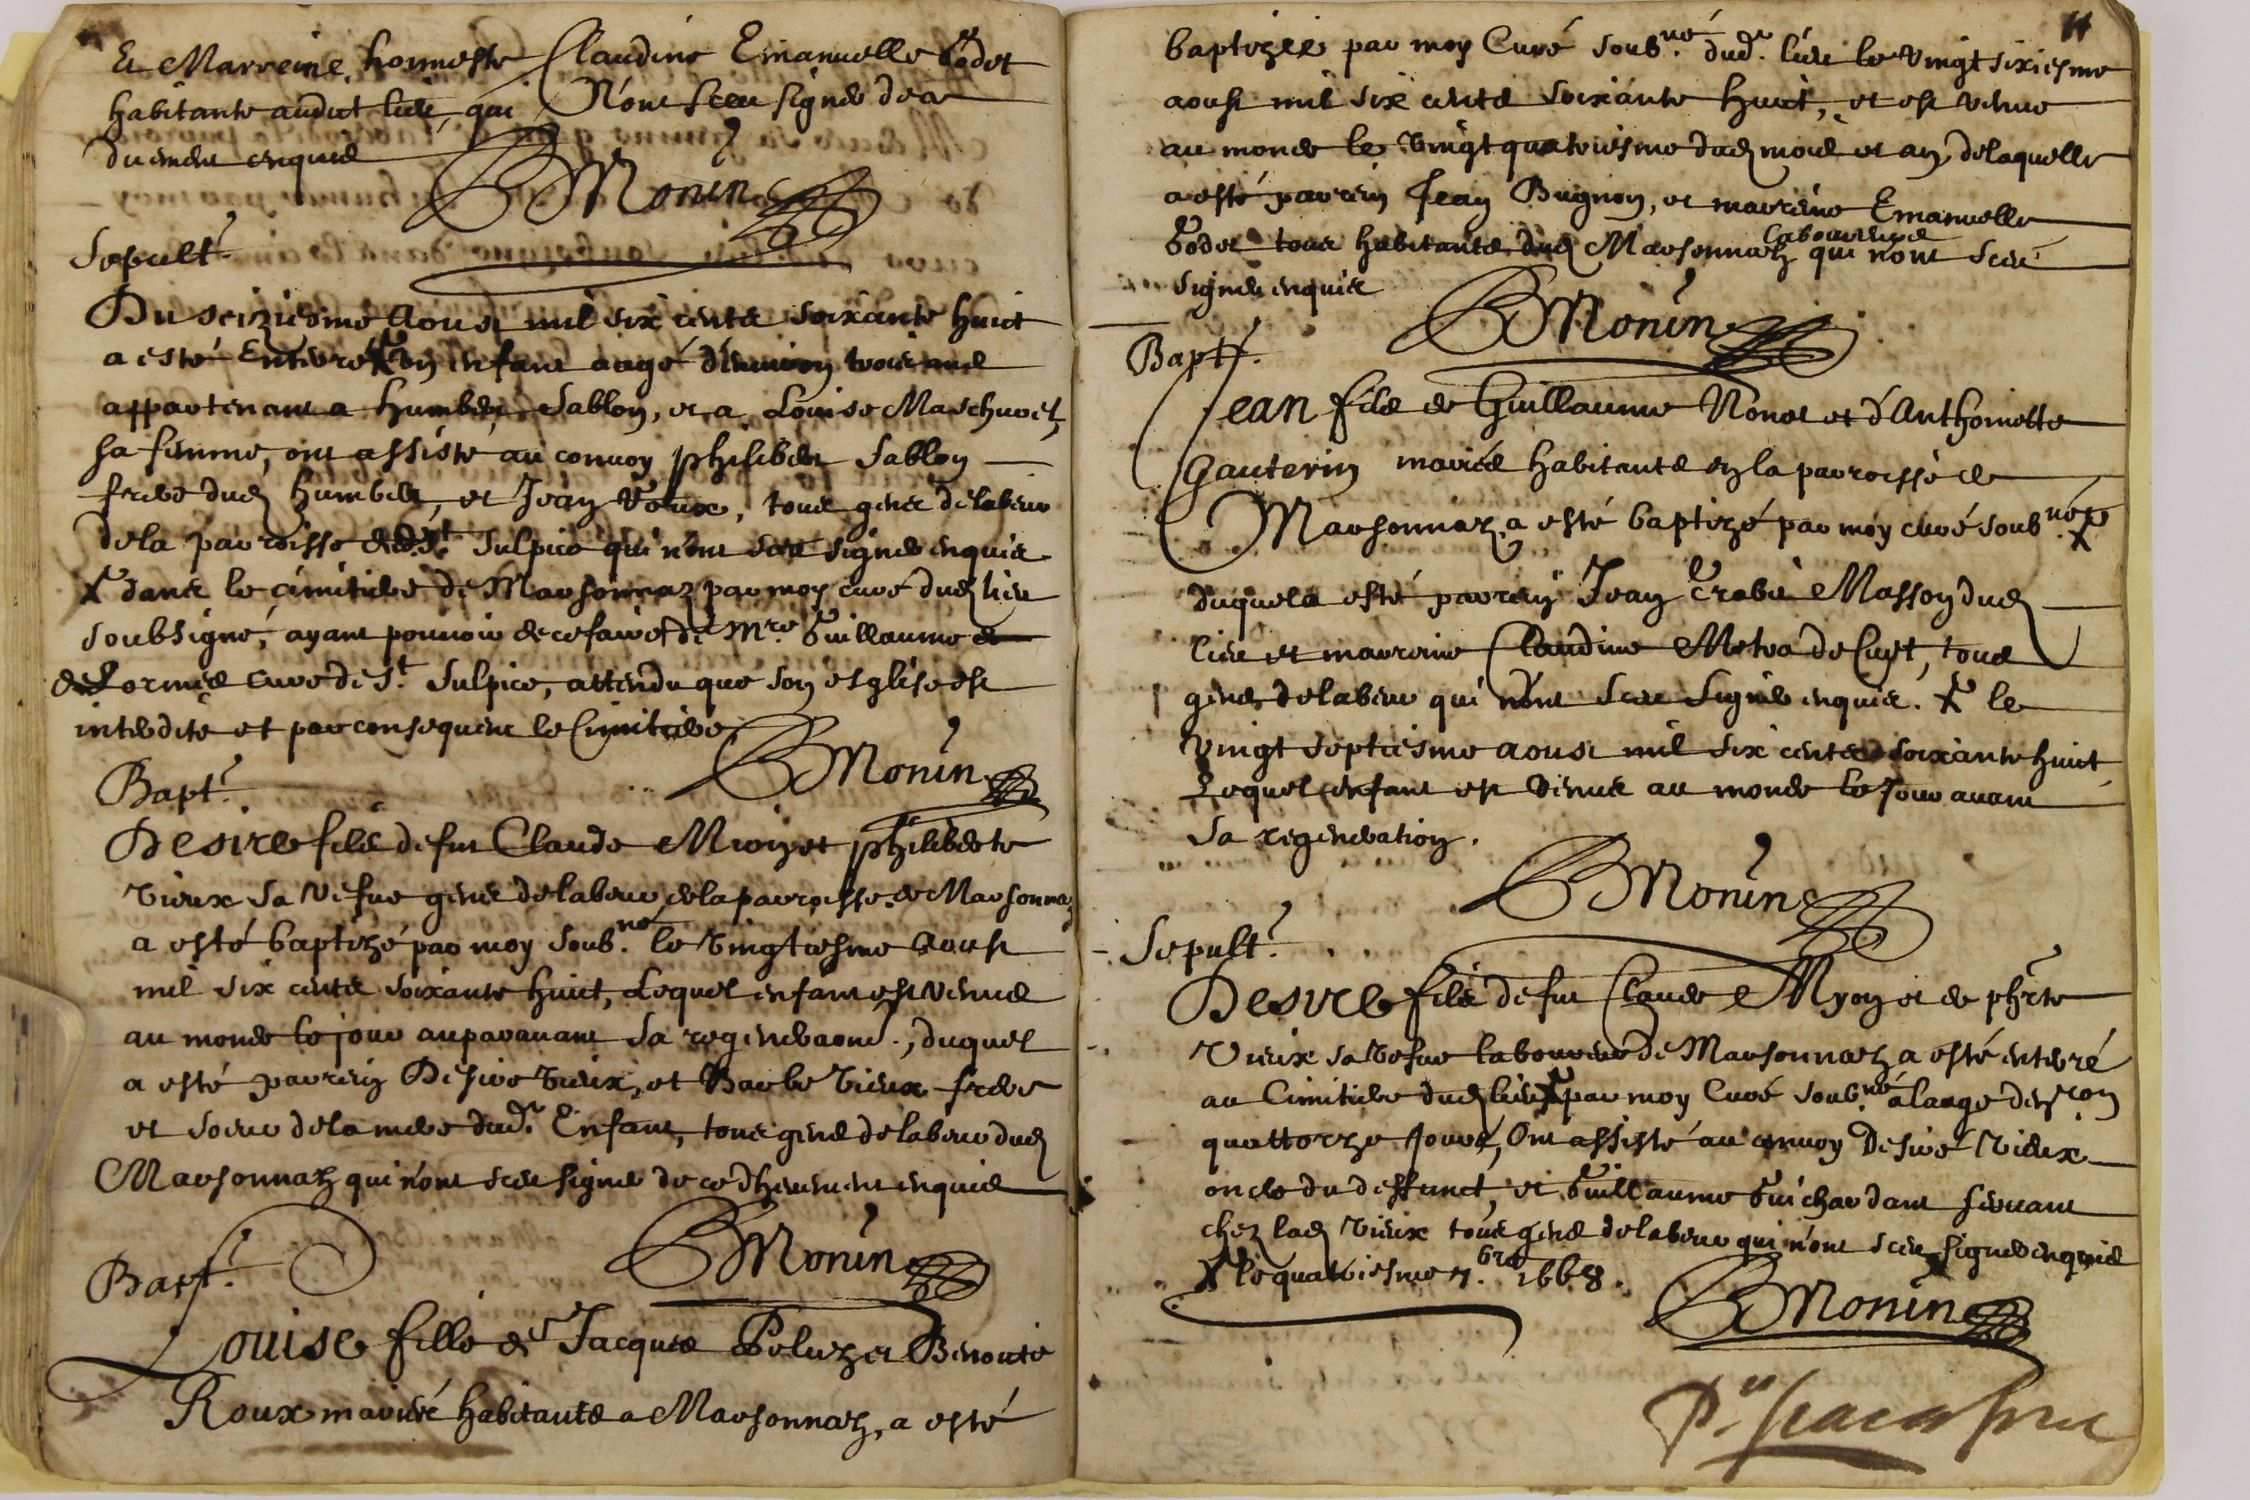 Et Marreine, honneste Claudine Emanuelle Godet
habitante audict lieu, qui N'ont sceu signer de ce
duement enquis
BMonin
Sepult.
Du seiziesme Aoust mil six cents soixante huict
a esté Enterré X un enfant aagé d'environ trois ans
appartenant a Humbert Sablon, et a Louise Maschuret,
sa femme, ont assisté au convoy philibert Sablon
frere dud Humbert, et Jean Roux, tous gens de labeur
de la parroisse de St. Sulpice qui n'ont sceu signer enquis
X dans le cimitiere de Marsonnaz par moy curé dud lieu
soubsigné, ayant pouvoir de ce faire de Mre Guillaume
curé de St. Sulpice, attendu que son esglise est
interdite et par consequent le Cimitiere
BMonin
Bapt.
Desire fils de fut Claude Mion et philiberte
Vieux sa vefve gens de labeur de la parroisse de Marsonnaz
a esté baptizé par moy soub.né le vingtiesme Aoust
mil six cents soixante huict, Lequel enfant est venus
au monde le jour auparavant sa regeneraõn., duquel
a esté parrein Desire Vieux, et Barbe Vieux frere
et soeur de la mere dud. Enfant, tous gens de labeur dud
Marsonnatz qui n'ont sceu signer de ce dheuement enquis
BMonin
Bapt.
Louise fille de Jacques Peluz et Benoite
Roux mariés habitants a Marsonnatz, a esté
11
baptizée par moy Curé soub.né dud. lieu le vingt sixiesme
aoust mil six cents soixante huict, et est venue
au monde le vingt quatriesme dud mois et an de laquelle
a esté parrein Jean Bugnon, et marreine Emanuelle
laboureurs
Godet tous habitants dud Marsonnatz qui n'ont sceu
signer enquis
BMonin
Bapt.
Jean fils de Guillaume Nonet et d'Anthoinette
Gauterin mariés habitants en la parroisse de
Marsonnaz, a esté baptizé par moy curé soub.né X
duquel a esté parrein Jean Masson dud
lieu et marreine Claudine Metra de Cuet, tous
gens de labeur qui n'ont sceu signer enquis. X le
vingt septiesme aoust mil six cents soixante huict
Lequel enfant est venus au monde le jour avant
sa regeneration.
BMonin
Sepult.
Desire fils de fut Claude Myon et de phrte
Vieux sa vefve laboureurs de Marsonnatz a esté enterré
au Cimitiere dud lieu X par moy Curé soub.né a l'aage denron
quattorze jours, Ont assisté au convoy Desire Vieux
oncle du deffunct, et Guillaume Guichardant servant
chez lad Vieux tous gens de labeur qui n'ont sceu signer enquis
X le quatriesme 7.bre 1668.
BMonin